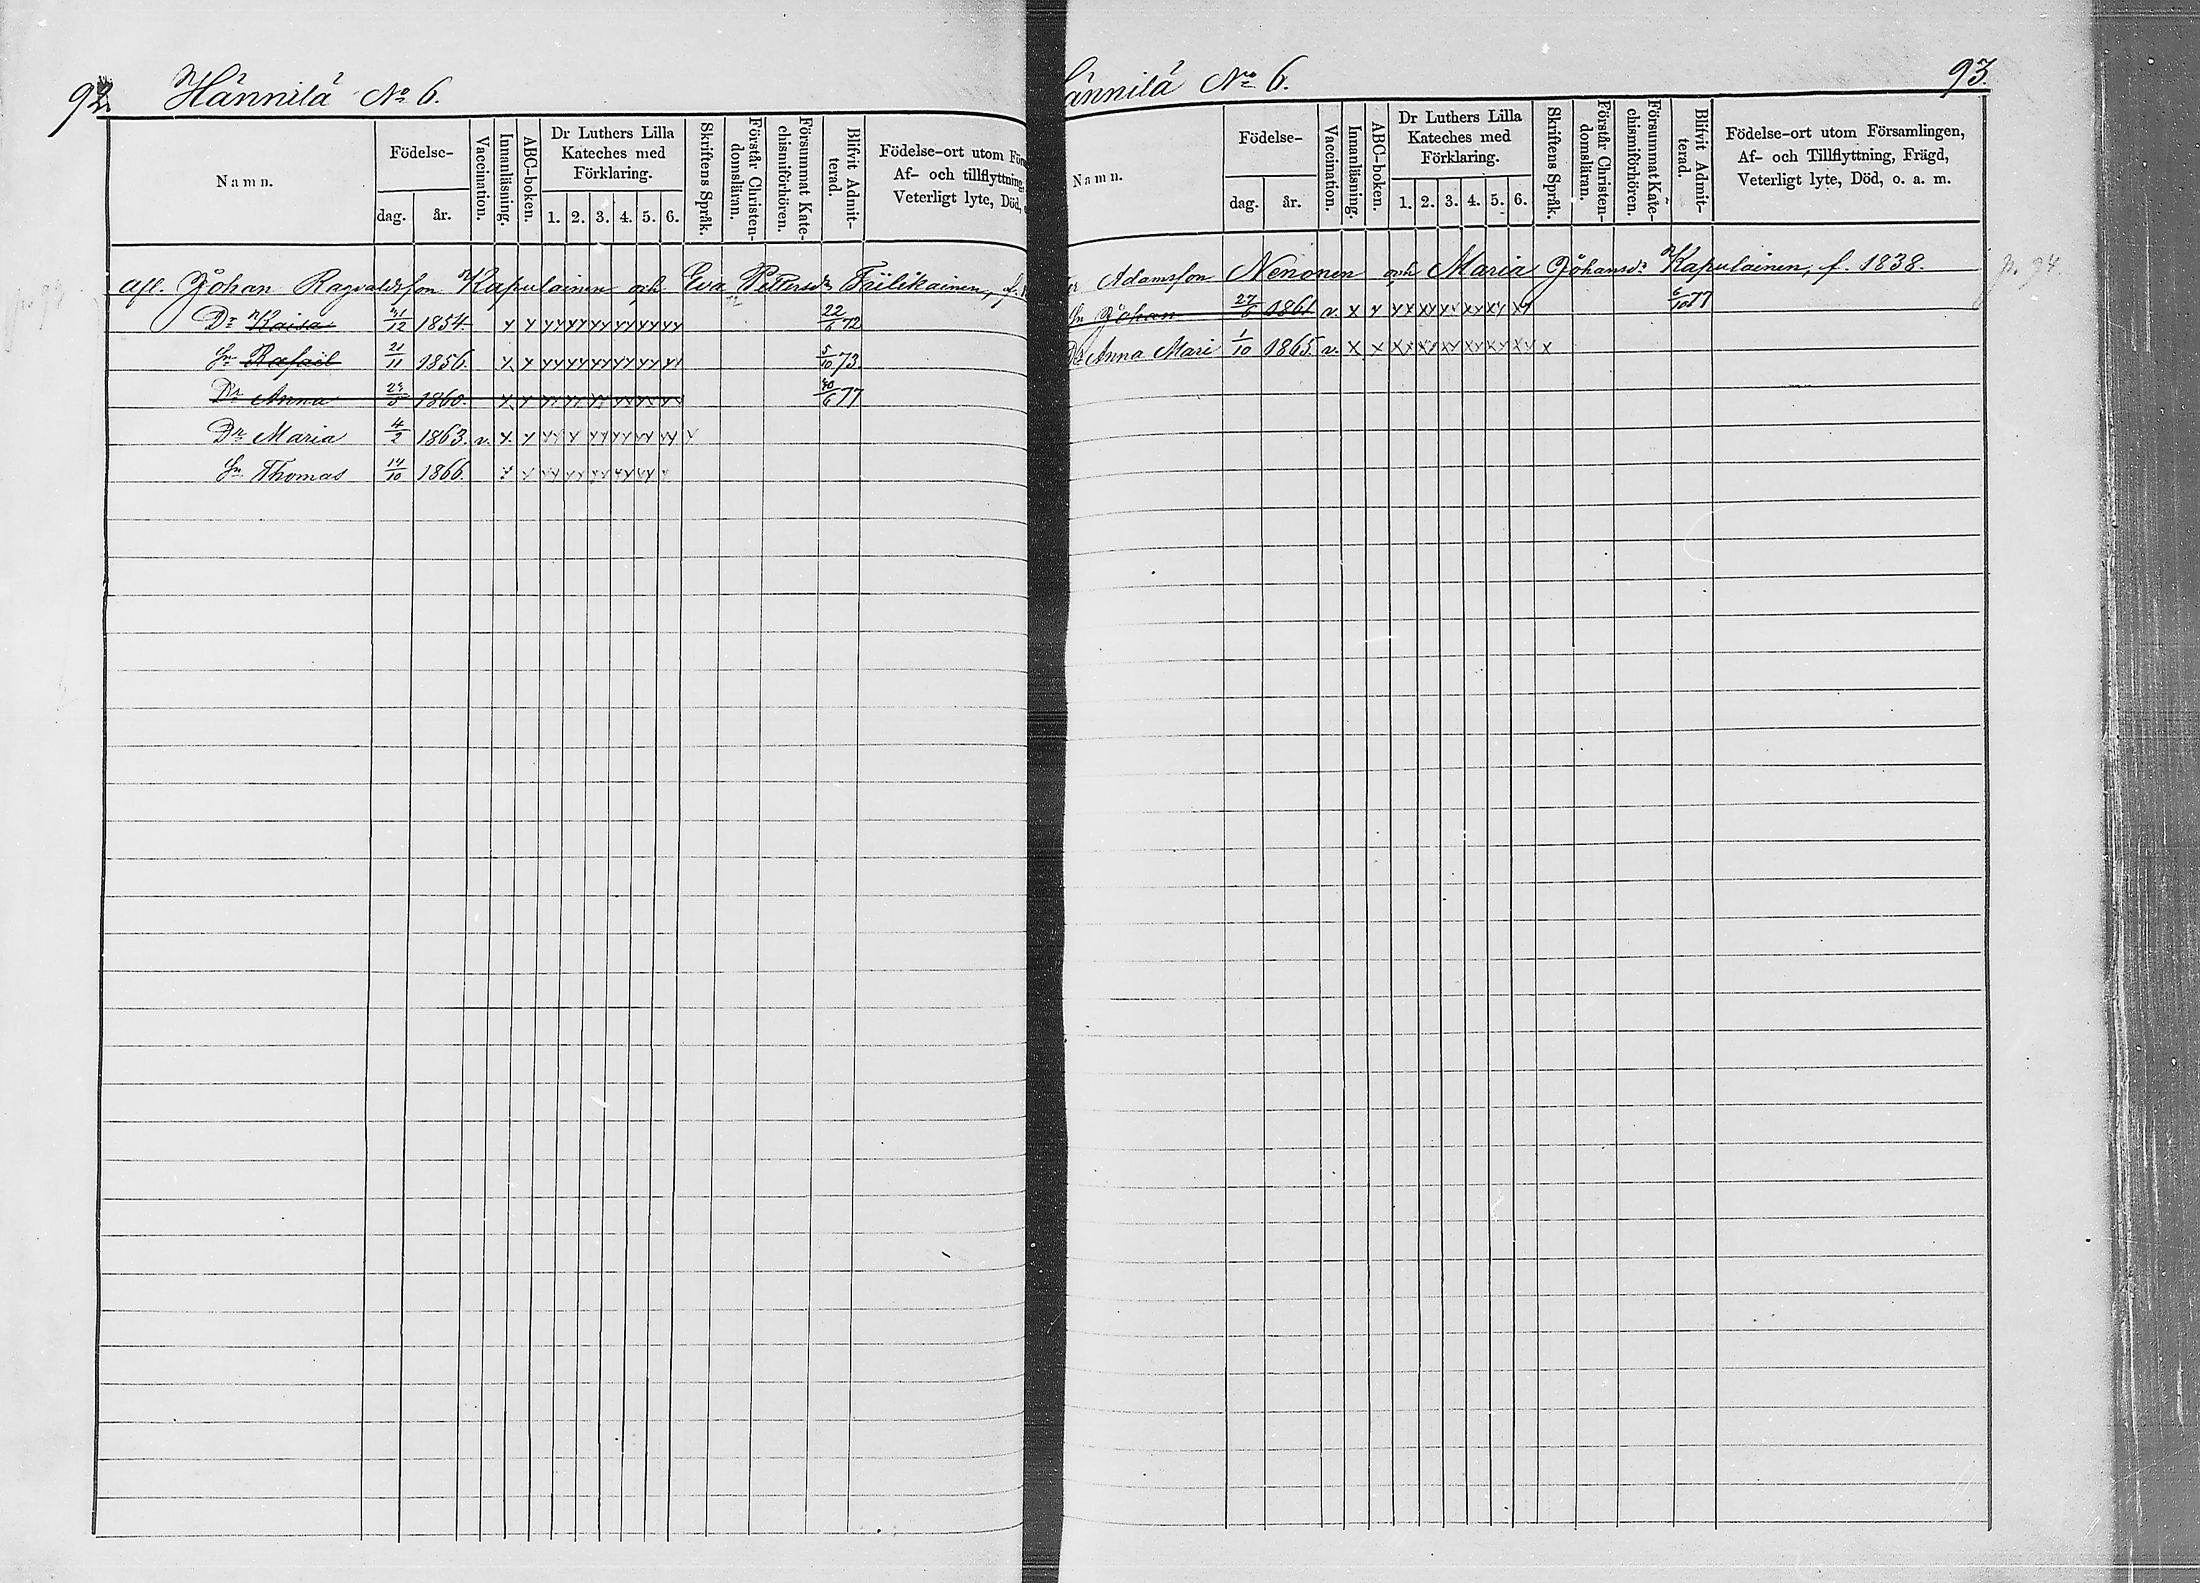 92. Hännilä No 6.
Namn.
Födelse-
dag.
år.
Vaccination.
Innanläsning.
ABC-boken.
Dr Luthers Lilla
Kateches med
Förklaring.
1. 2. 3. 4. 5. 6.
Skriftens Språk.
Förstår Christen-
domsläran.
Försummat Kate-
chismiförhören.
Blifvit Admit-
terad.
Födelse-ort utom
Af- och tillflyttning,
Veterligt lyte, Död,
afl. Johan Ragvaldsson Kapulainen och Eva Pettersdr Tiilikainen, f.
Dr Kaisa 31/12 1854. x x xx xx xx xx xx xx 22/6 72
Sn Rafael 21/11 1856. x x xx xx xx xx xx xx 5/10 73.
Dr Anna 1860. x x xx xx xx xx xx xx 30/6 77
Dr Maria 4/2 1863. v. x x xx x xx xx xx xx x
Sn Thomas 14/10 1866. x x xx xx xx xx xx x
ännilä No 6. 93.
Namn.
Födelse-
dag.
år.
Vaccination.
Innanläsning.
ABC-boken.
Dr Luthers Lilla
Kateches med
Förklaring.
1. 2. 3. 4. 5. 6.
Skriftens Språk.
Förstår Christen-
domsläran.
Försummat Kate-
chismiförhören.
Blifvit Admit-
terad.
Födelse-ort utom Församlingen,
Af- och Tillflyttning, Frägd,
Veterligt lyte, Död, o. a. m.
Adamsson Nenonen och Maria Johansdr Kapulainen, f. 1838. p. 94
Sn Johan 27/6 1861 v. x x xx xx xx xx xx xx 6/10 77
Dr Anna Mari 1/10 1865. v. x x xx xx xx xx xx xx x